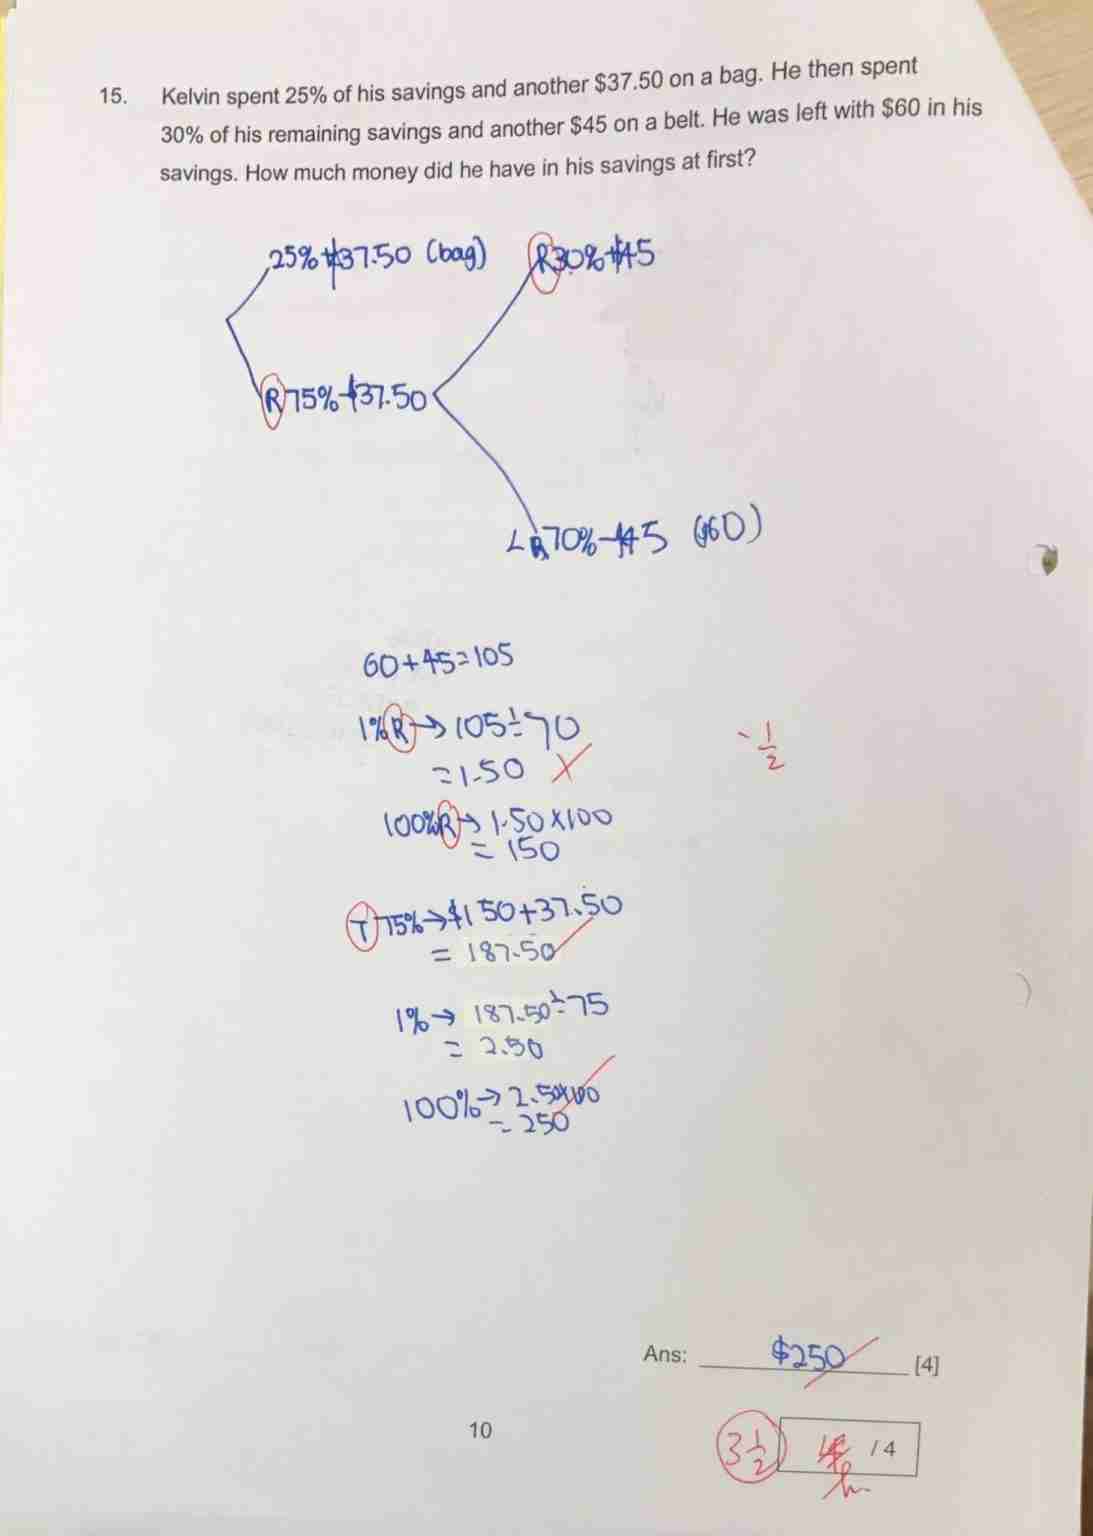 15. Kelvin spent 25% of his savings and another $37.50 on a bag. He then spent
30% of his remaining savings and another $45 on a belt. He was left with $60 in his
savings. How much money did he have in his savings at first?
25%+$37.50 (bag) R30%+$45
R75%-$37.50
R70%-$45 ($60)
60+45=105
1%R→105÷70
=1.50
-1/2
100%R→1.50x100
=150
T75%→$150+37.50
=187.50
1%→187.50÷75
=2.50
100%→2.50x100
=250
Ans: $250 [4]
10
3 1/2 /4